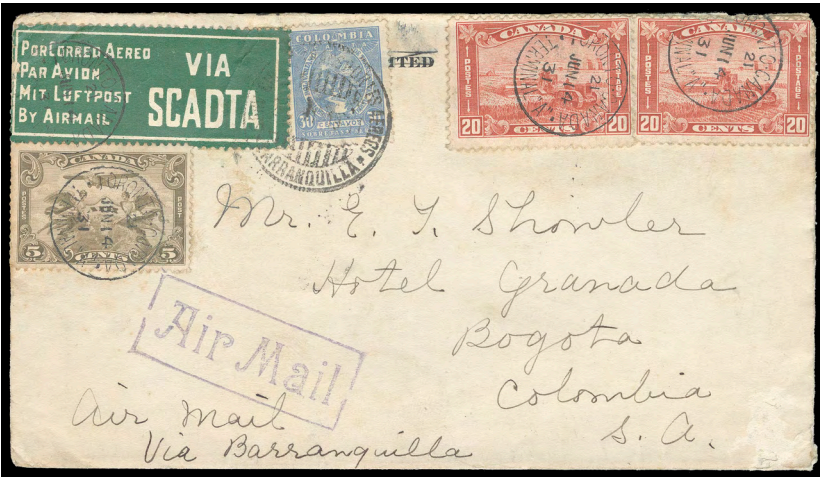 POR CORREO AEREO
PAR AVION
MIT LUFTPOST
BY AIRMAIL
VIA
SCADTA
COLOMBIA
30
CENTAVOS
BARRANQUILLA
ITED
CANADA
POSTES
POSTAGE
21
JUN 14
31
TERMINAL A
20
CENTS
20
CANADA
POSTES
POSTAGE
21
JUN 14
31
20
CENTS
20
CANADA
POSTES
POST
TORONTO
JUN 14
31
5
CENTS
5
Mr. E. T. Showler
Hotel Granada
Bogota
Colombia
S. A.
Air Mail
Air Mail
Via Barranquilla